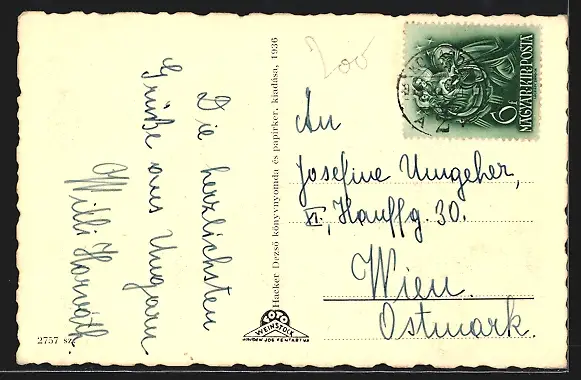 Die herzlichsten
Grüße aus Ungarn
Willi Horváth
2757 sz.
Hacker Dezső könyvnyomda és papirker. kiadása, 1936
WEINSTOCK
200
MAGYAR·KIR·POSTA
6f
An
Josefine Umgeher,
XI., Hauffg. 30.
Wien.
Ostmark.